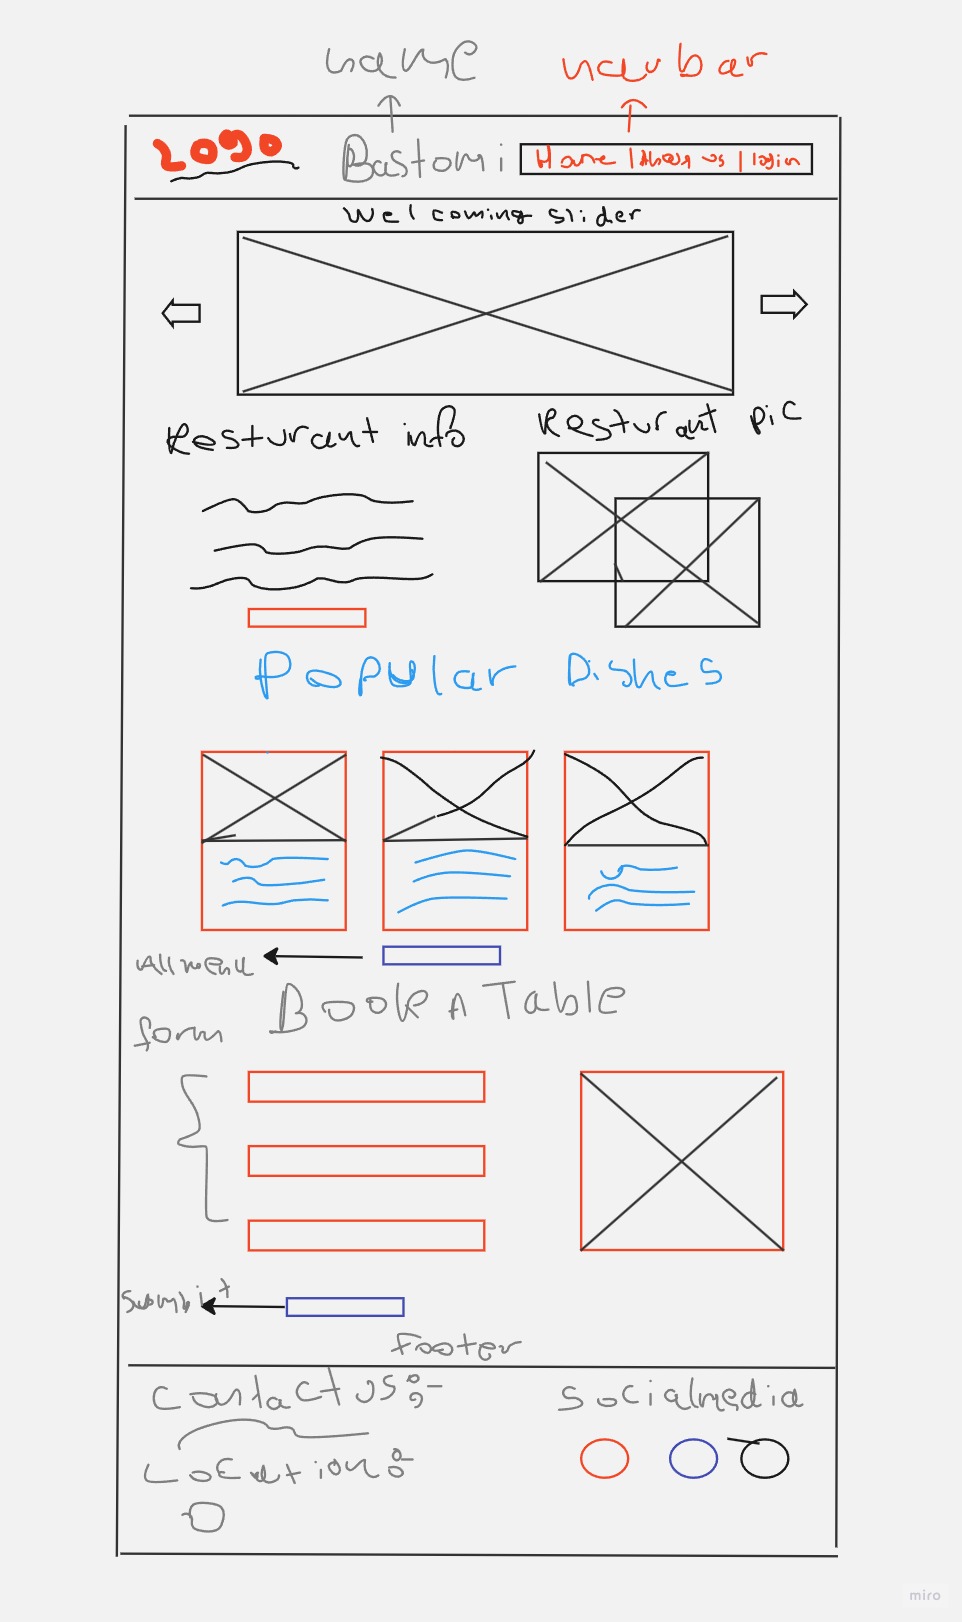 name
navbar
Logo
Bastomi
Home | About us | login
Welcoming slider
Resturant info
Resturant pic
Popular Dishes
All menu
Book A Table
form
Submit
Footer
Contact us:-
Social media
Location:-
miro